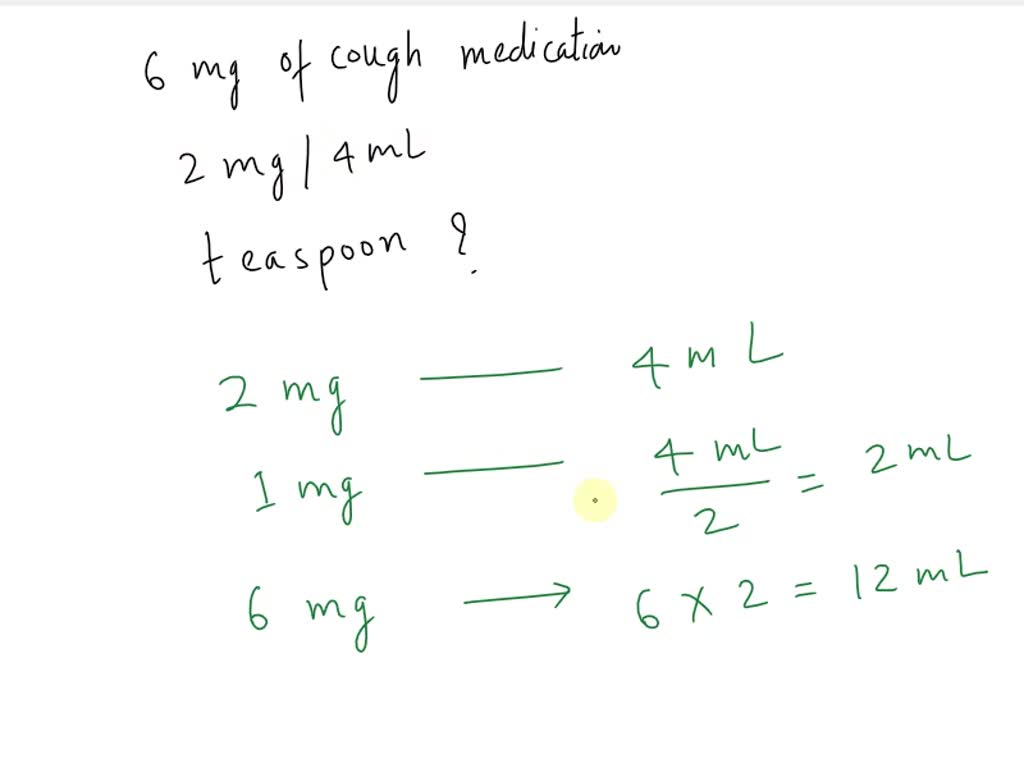 6 mg of cough medication
2 mg/4mL
teaspoon ?
2 mg — 4 mL
1 mg — 4 mL/2 = 2 mL
6 mg → 6 × 2 = 12 mL